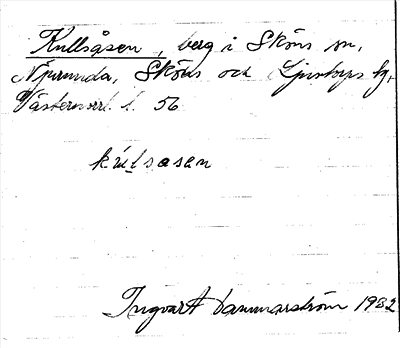 Kullsåsen, berg i Sköns sn,
Njurunda, Sköns och Ljustorps tg,
Västernorrl. l. 56
kúlsasen
Ingvar Hammarström 1932